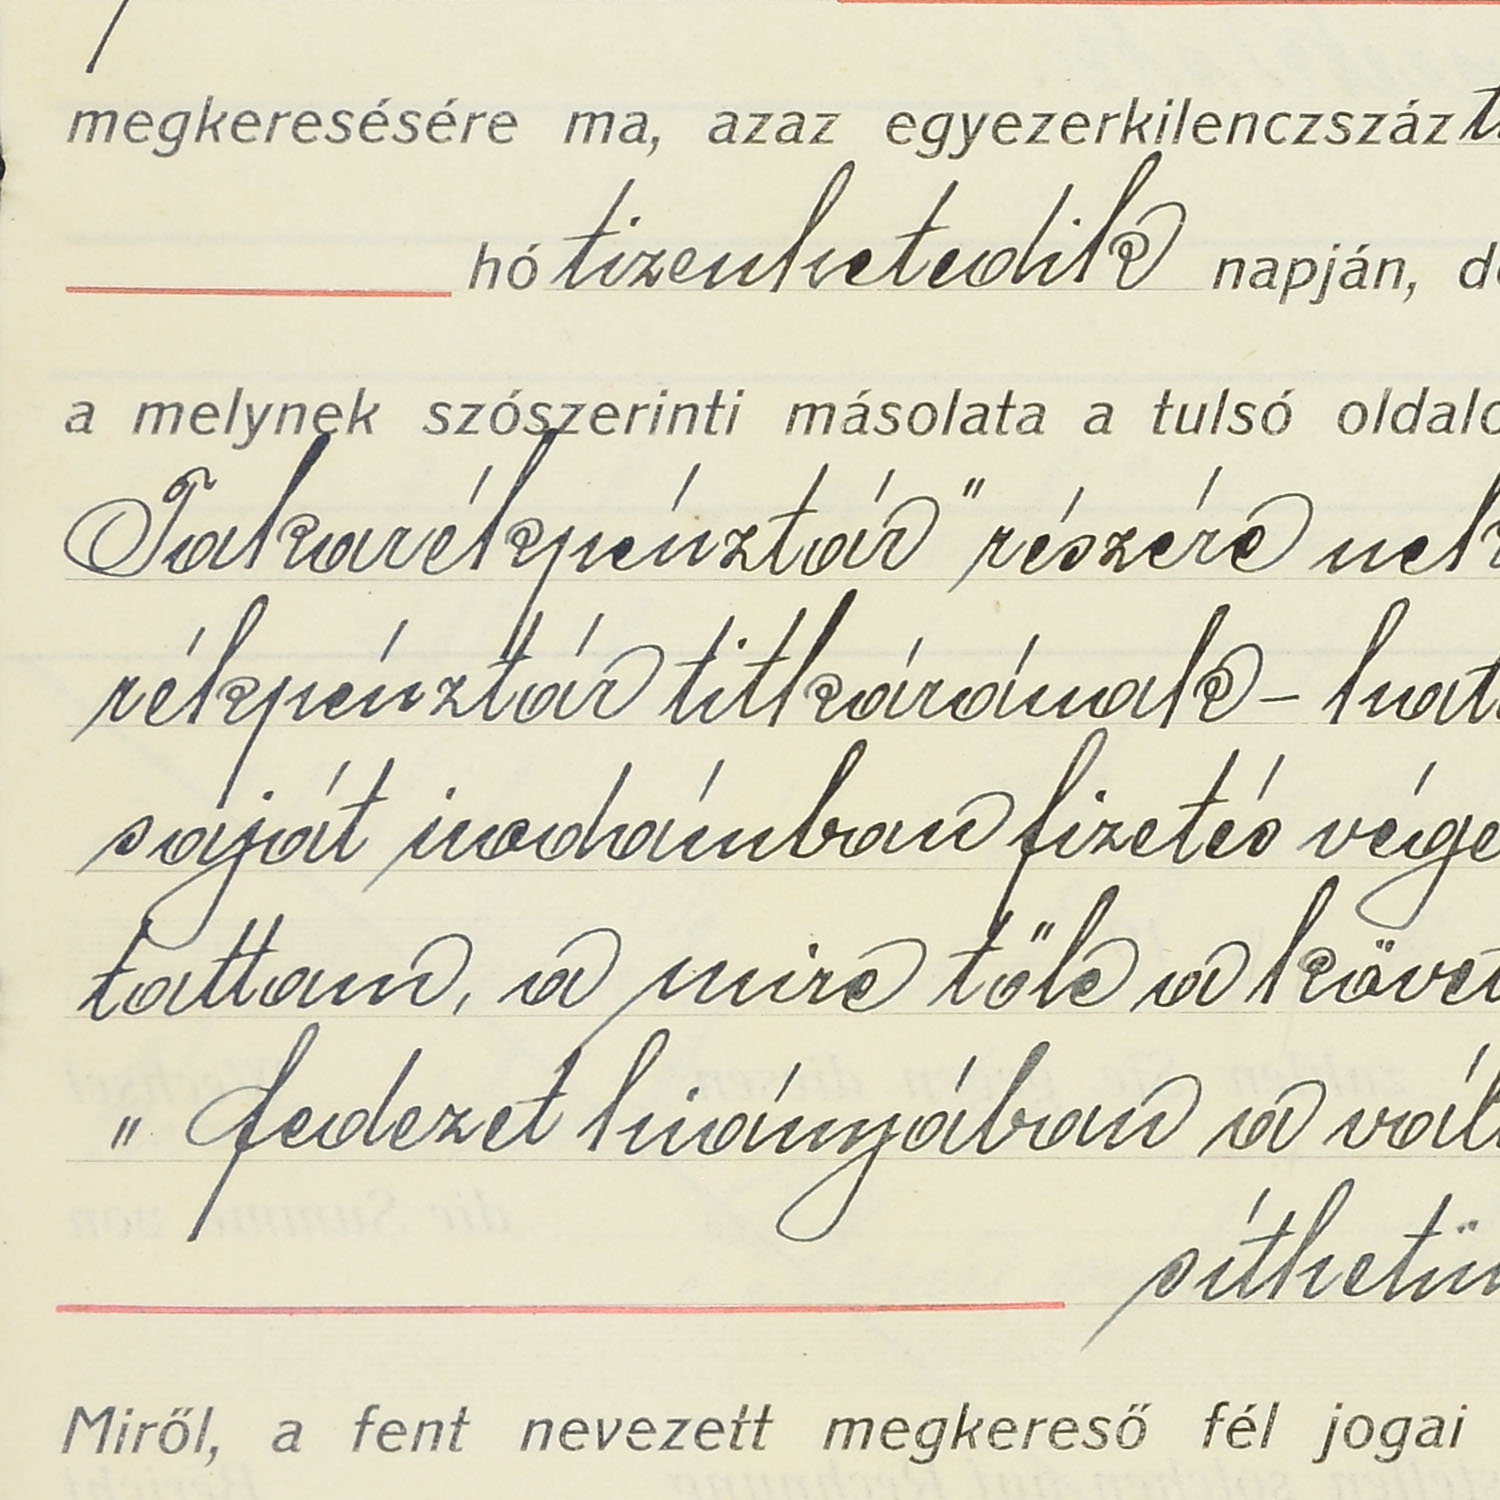 megkeresésére ma, azaz egyezerkilenczszáz
hó tizenhetedik napján,
a melynek szószerinti másolata a tulsó
Takarékpénztár" részére
rékpénztár titkárának –
saját irodámban fizetés
tattam, a mire tőle a
„ fedezet hiányában a
Miről, a fent nevezett megkereső fél jogai